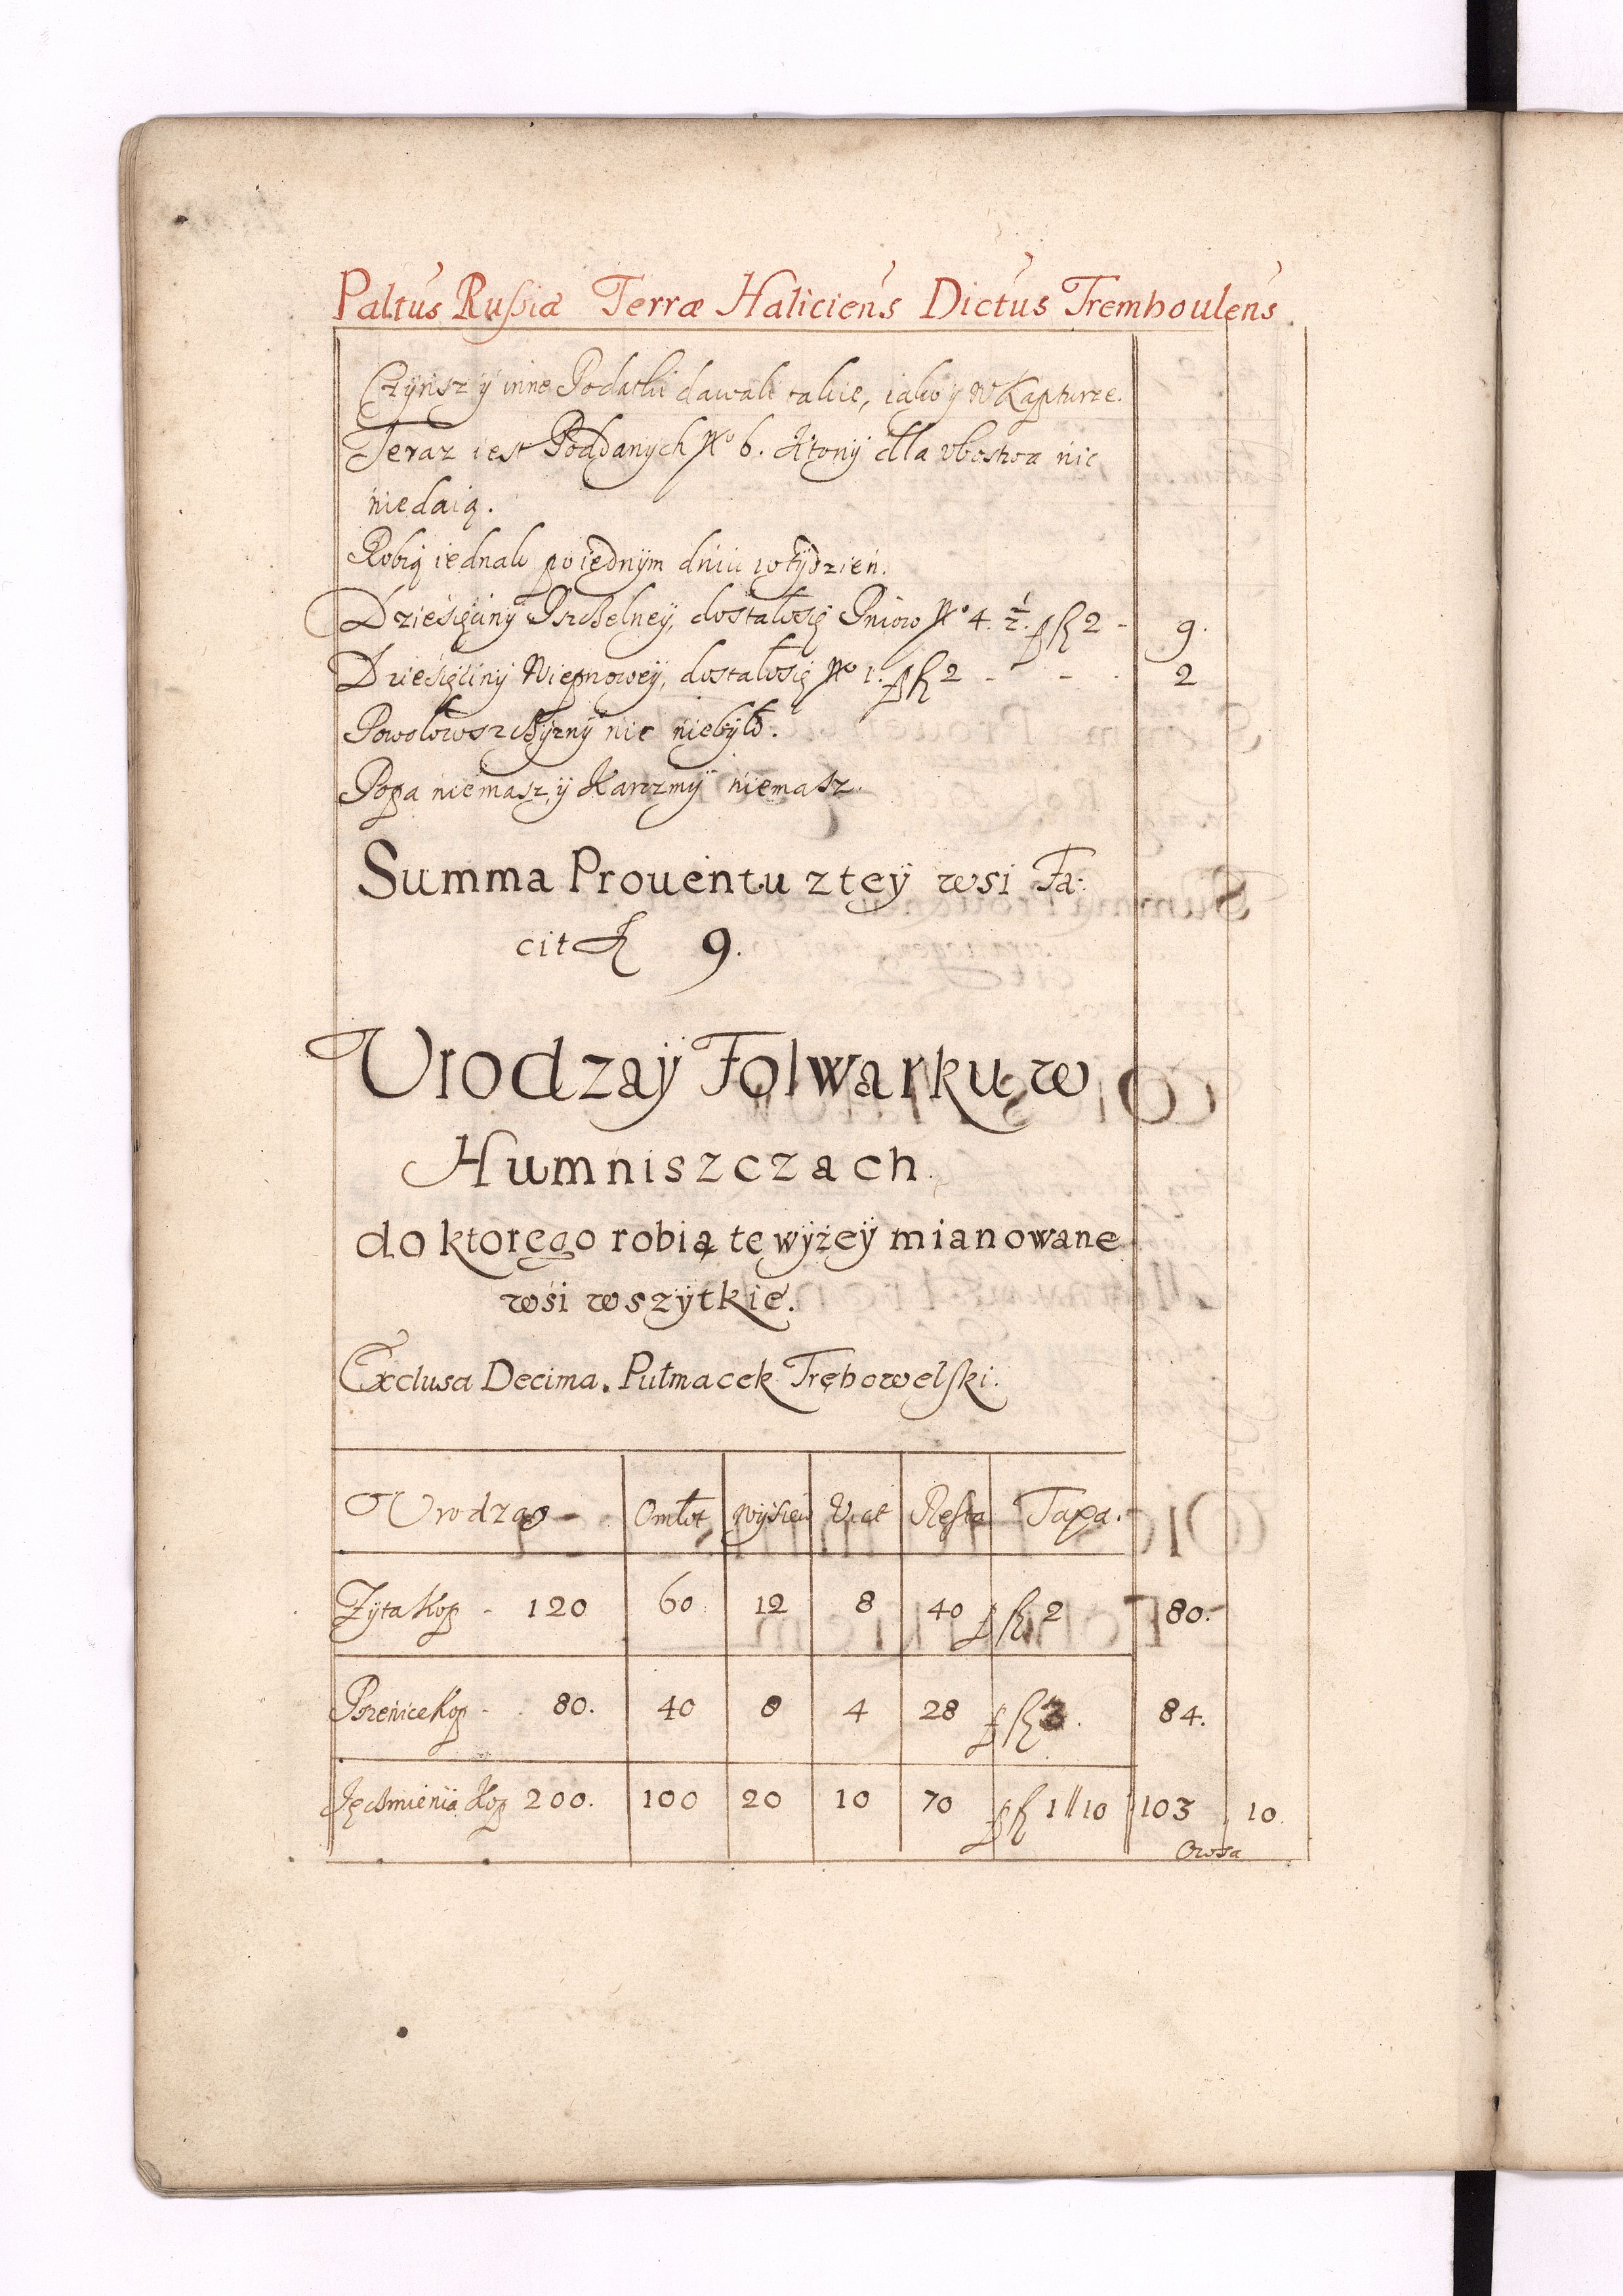 Paltus Russiæ Terræ Haliciens Dictus Tremboulens
Czynsz y inne Podatki dawali takie, iako y w Kapturze.
Teraz iest Poddanych No 6. Ktorzy dla vbostwa nic
niedaią.
Robią iednak po iednym dniu w tydzień.
Dziesięciny Pszczelney, dostało się Pniow No 4. 1/2. p fl 2 - 9.
Dziesięciny Wieprzowey, dostało się No 1. p fl 2 - - . 2
Powołowszczyzny nic niebyło.
Popa niemasz, y Karczmy niemasz.
Summa Prouentu z tey wsi Fa:
cit fl 9.
Vrodzaÿ Folwarku w
Humniszczach.
do ktorego robią te wyżeÿ mianowane
wsi wszÿtkie.
Exclusa Decima. Pułmacek Trębowelski.
Vrodzaÿ Omłot Wysiew Vict Resta Taxa.
Zyta Kop - 120 60 12 8 40 p fl 2 80.
Pszenice Kop - 80. 40 8 4 28 p fl 3. 84.
Jęczmienia Kop 200. 100 20 10 70 p fl 1 // 10 103 10.
Owsa